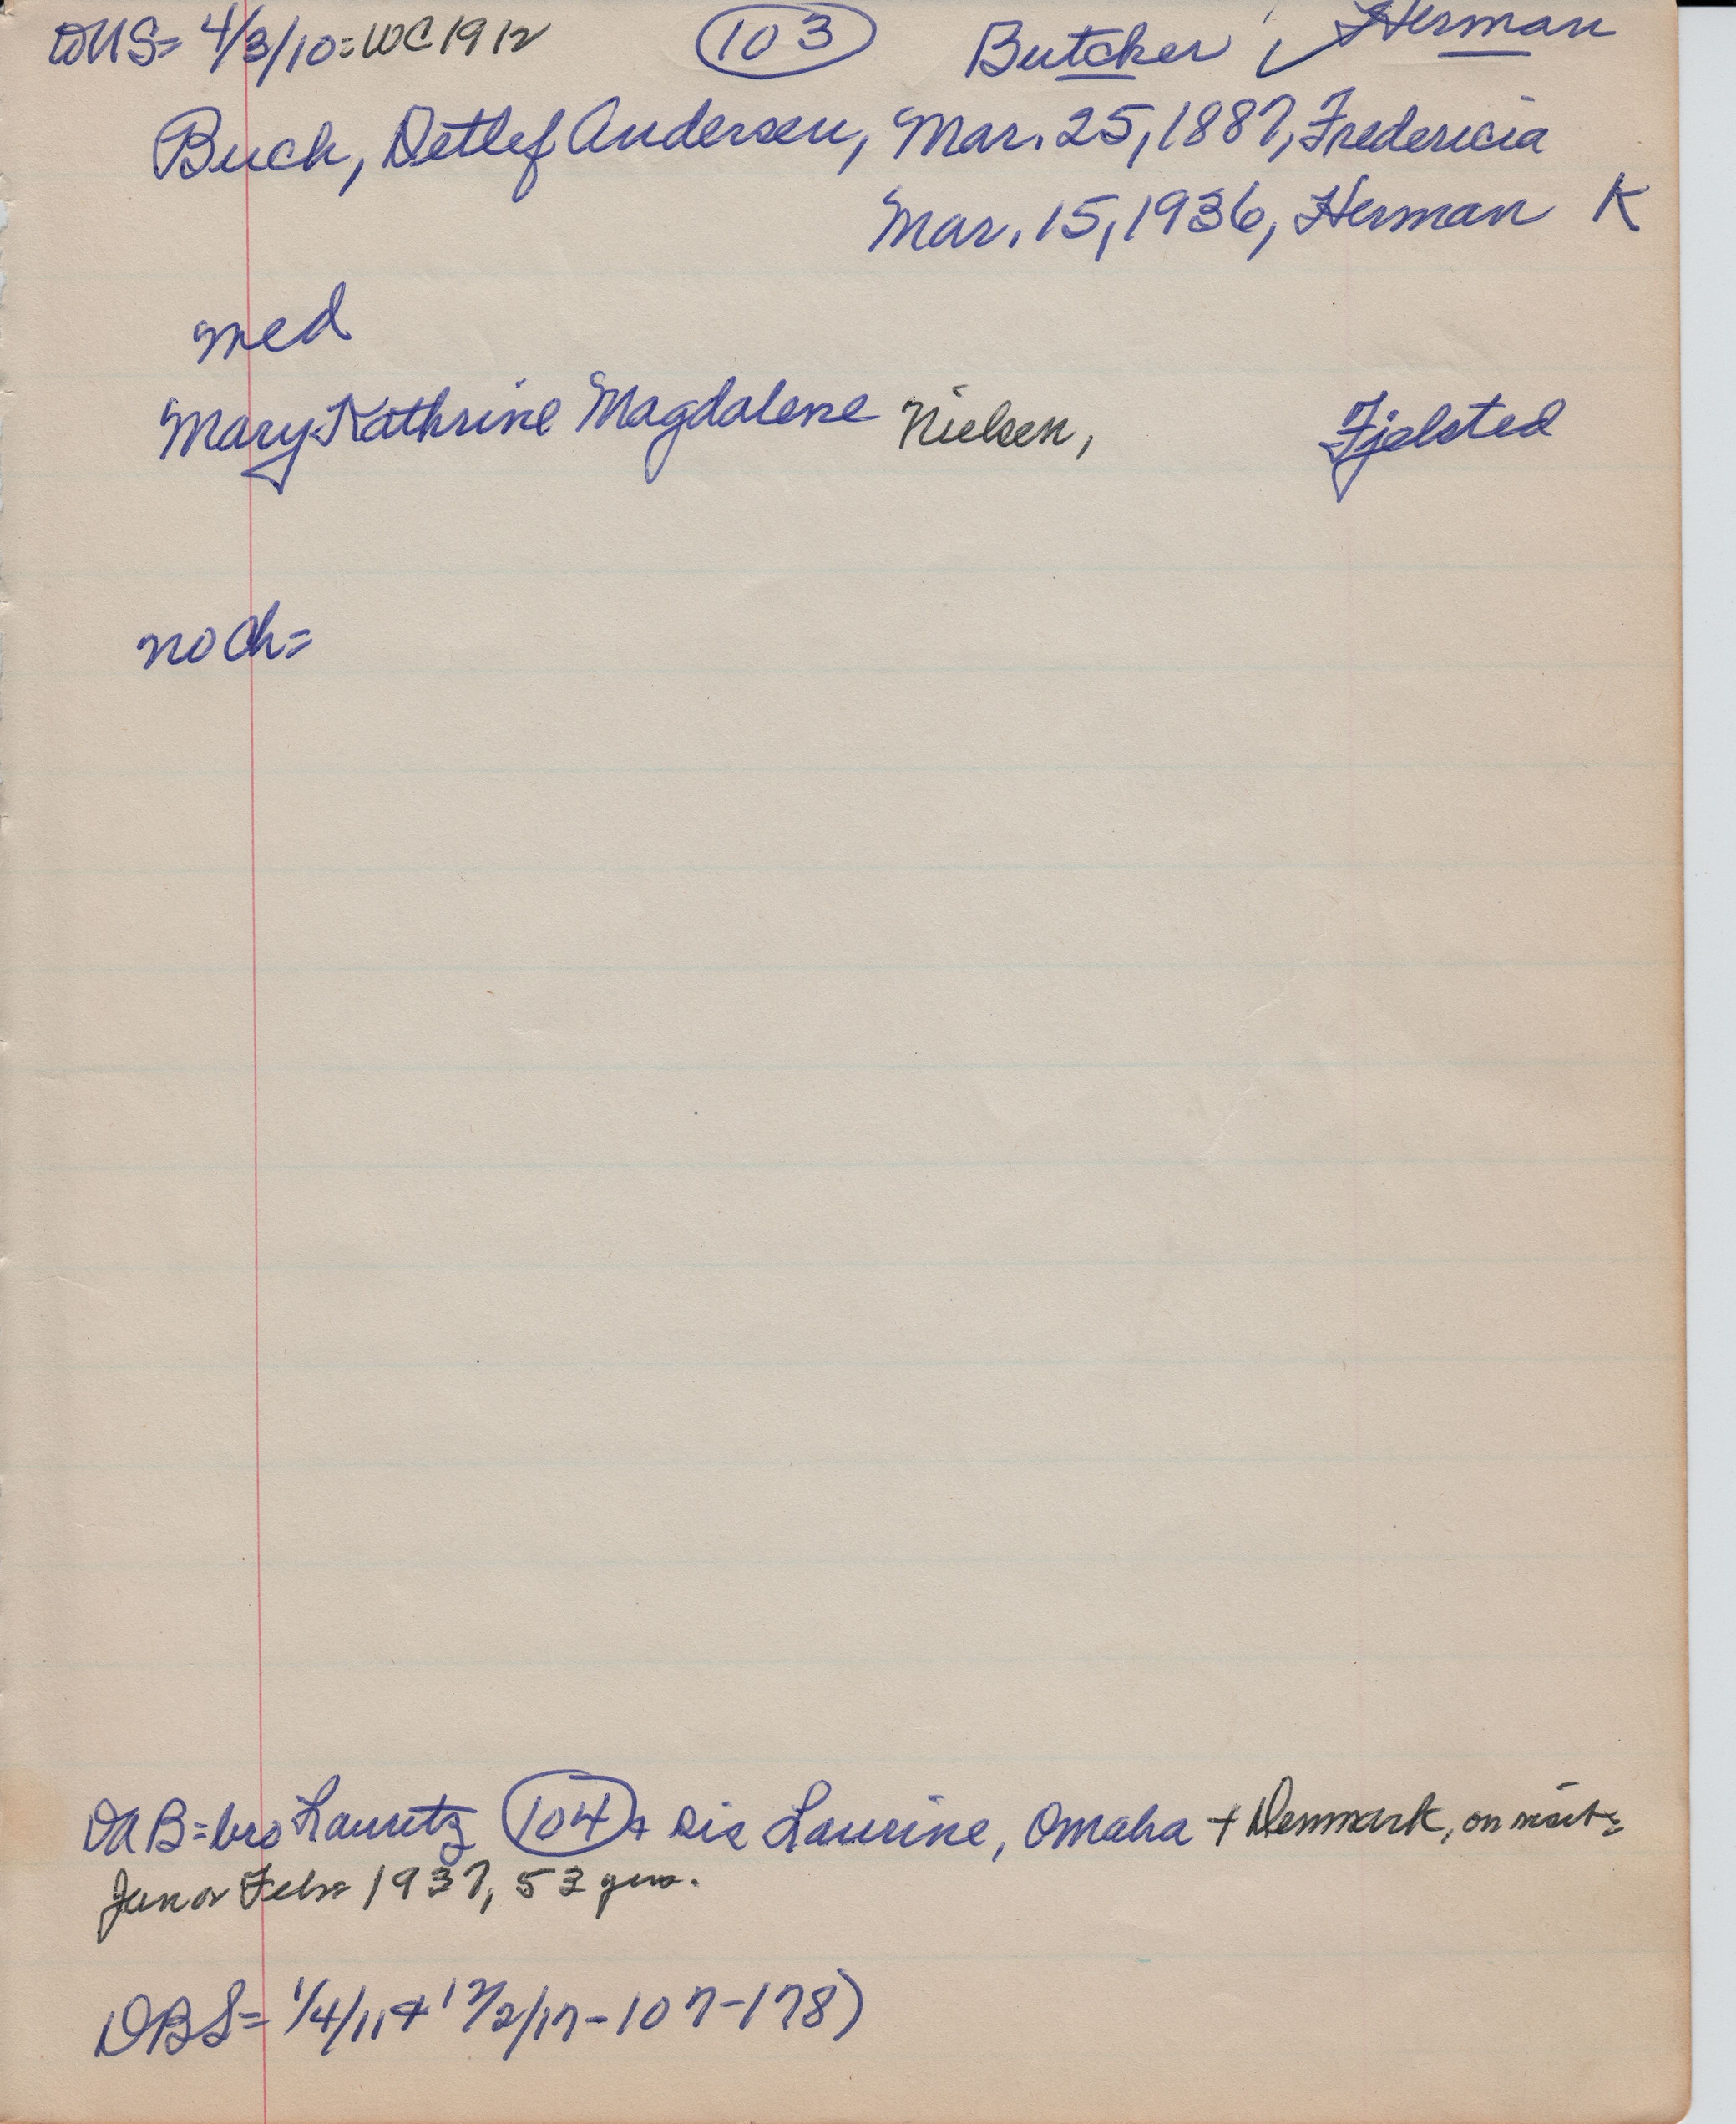 DUS= 4/3/10=WC1912 (103) Butcher, Herman
Buck, Detlef Andersen, Mar. 25, 1887, Fredericia
Mar. 15, 1936, Herman K
med
Mary Kathrine Magdalene Nielsen, Fjelsted
no ch=
DAB=bro Lauritz (104) + sis Laurine, Omaha + Denmark, on visit=
Jan or Feb= 1937, 53 yrs.
DBS= 1/4/11 + 17/2/17-107-178)